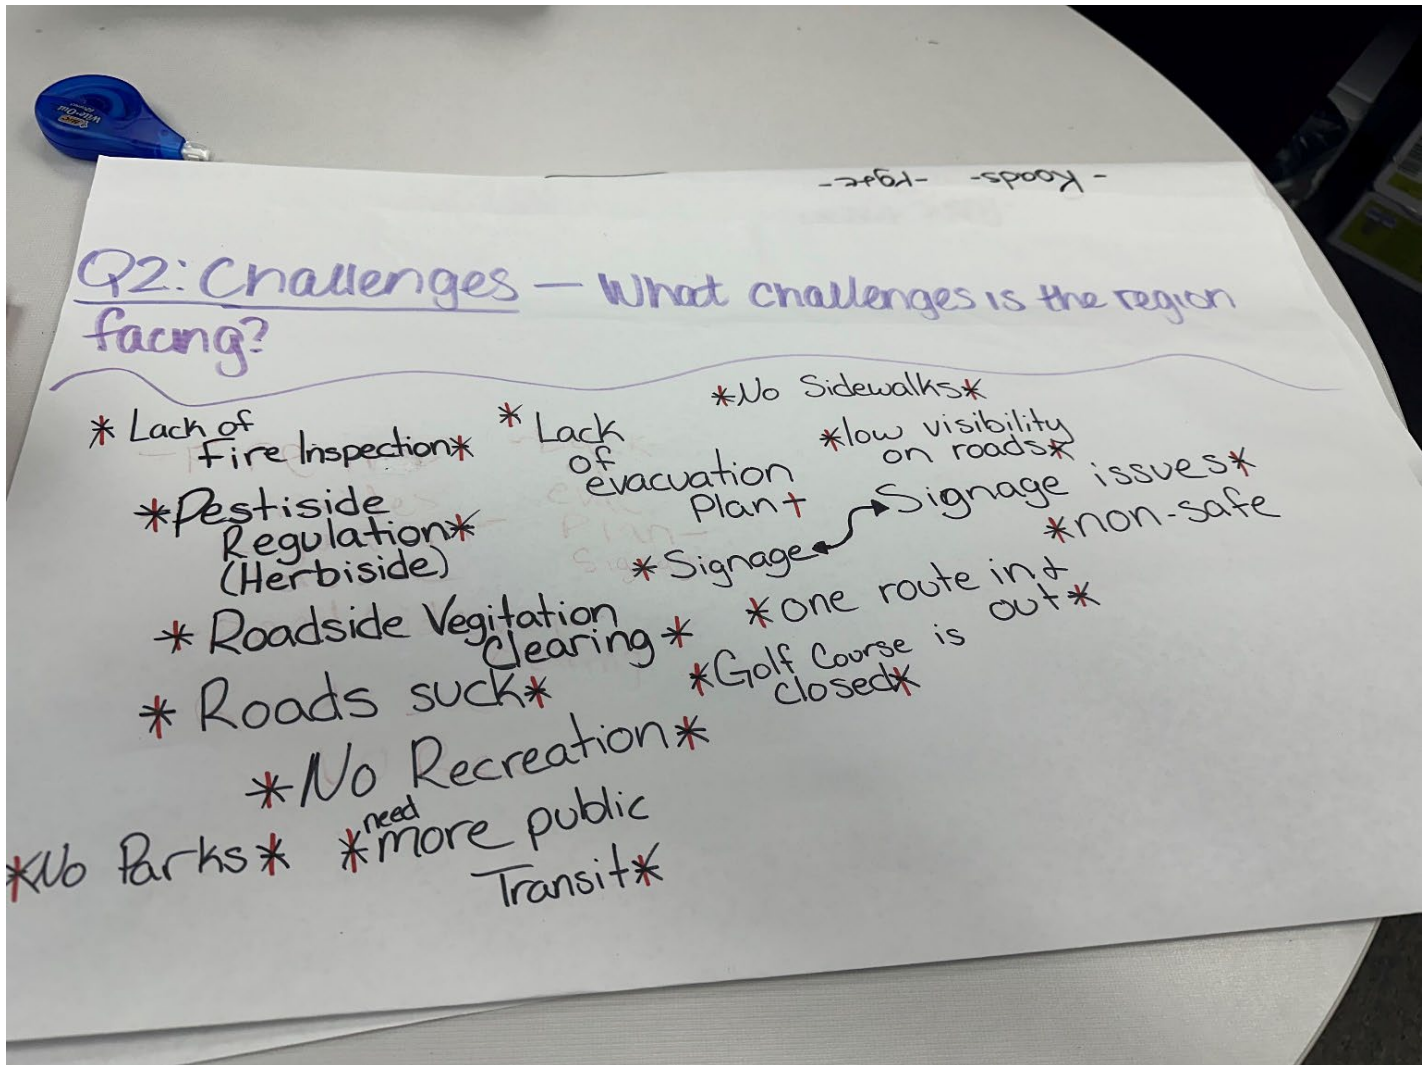 - Roads-
Q2: Challenges — What challenges is the region
facing?
* Lack of
Fire Inspection*
* Pestiside
Regulation*
(Herbiside)
* Roadside Vegitation
Clearing *
* Roads suck*
* No Recreation*
*No Parks*
* need
more public
Transit*
* Lack
of
evacuation
Plan+
* Signage
*No Sidewalks*
*low visibility
on roads*
Signage issues*
*non-safe
*one route in &
out*
*Golf Course is
closed*
BIC
Wite-Out